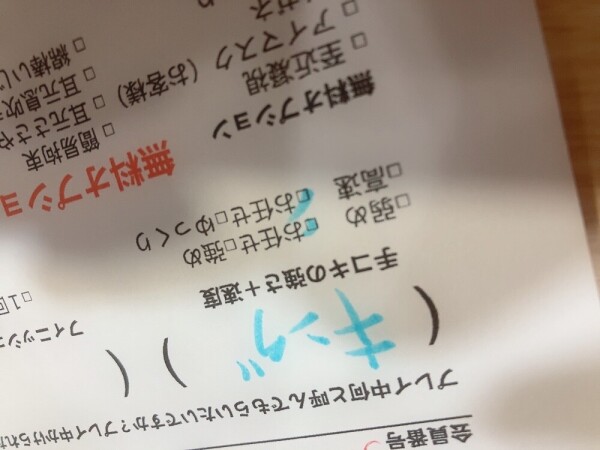 会員番号
プレイ中何と呼んでもらいたいですか？プレイ中かけられた
（キング）（
手コキの強さ＋速度
フィニッシュ
□弱め □お任せ□強め
□高速 □お任せ□ゆっくり
□1回
無料オプション
無料オプショ
□至近凝視 （お客様）
□簡易拘束
□アイマスク
□耳元ささや
□耳元息吹
□綿棒いじ
ガネ